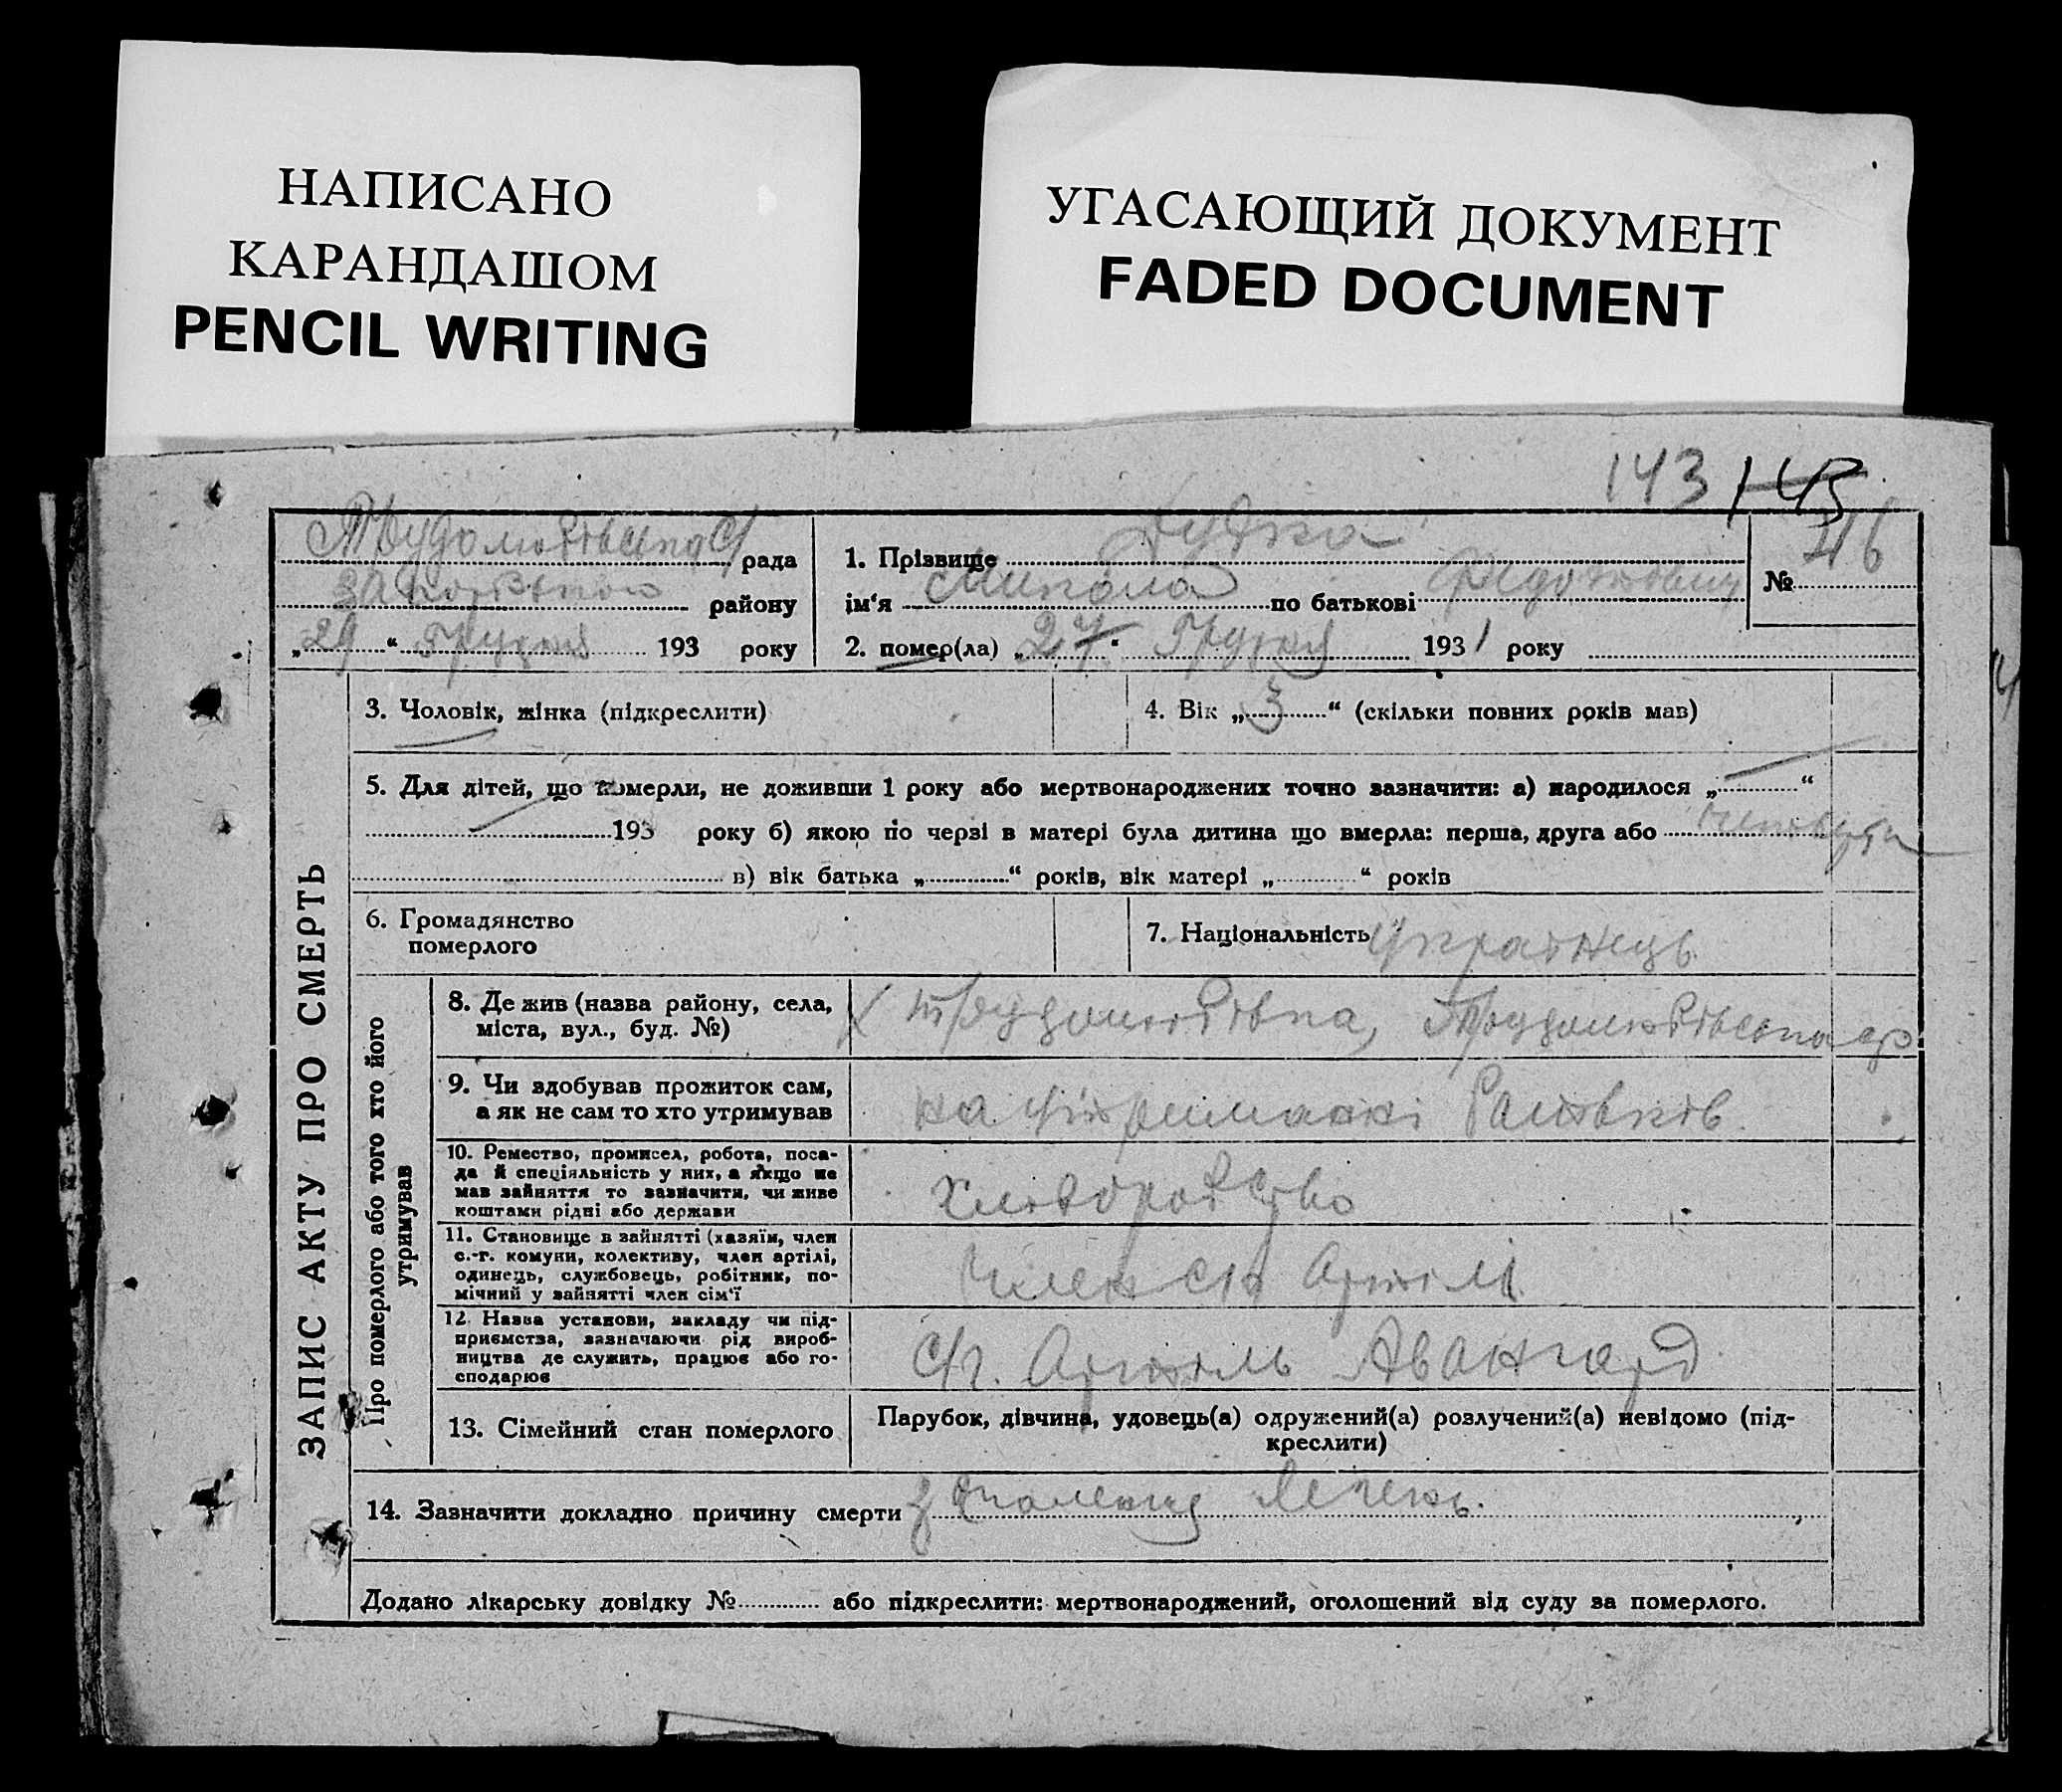 НАПИСАНО
КАРАНДАШОМ
PENCIL WRITING
УГАСАЮЩИЙ ДОКУМЕНТ
FADED DOCUMENT
143 143
Трудолюбівська С/ рада
району
„29“ Грудня 193 року
1. Прізвище Дудка
ім‘я Микола по батькові
2. помер(ла) „27“ Грудня 1931 року
№ 46
ЗАПИС АКТУ ПРО СМЕРТЬ
3. Чоловік, жінка (підкреслити)
4. Вік „3“ (скільки повних років мав)
5. Для дітей, що померли, не доживши 1 року або мертвонароджених точно зазначити: а) народилося „ “
193 року б) якою по черзі в матері була дитина що вмерла: перша, друга або
в) вік батька „ “ років, вік матері „ “ років
6. Громадянство
померлого
7. Національність Українець
Про померлого або того хто його
утримував
8. Де жив (назва району, села,
міста, вул., буд. №)
х Трудолюбівка, Трудолюбівська ср
9. Чи здобував прожиток сам,
а як не сам то хто утримував
на утриманні батьків
10. Ремество, промисел, робота, поса-
да й спеціяльність у них, а якщо не
мав зайняття то зазначити, чи живе
коштами рідні або держави
хліборобство
11. Становище в зайнятті (хазяїн, член
с.-г. комуни, колективу, член артілі,
одинець, службовець, робітник, по-
мічний у зайнятті член сім‘ї
член с/г Артілі
12. Назва установи, закладу чи під-
приємства, зазначаючи рід вироб-
ництва де служить, працює або го-
сподарює
с/г. Артіль Авангард
13. Сімейний стан померлого
Парубок, дівчина, удовець(а) одружений(а) розлучений(а) невідомо (під-
креслити)
14. Зазначити докладно причину смерти з палення легень.
Додано лікарську довідку № або підкреслити: мертвонароджений, оголошений від суду за померлого.